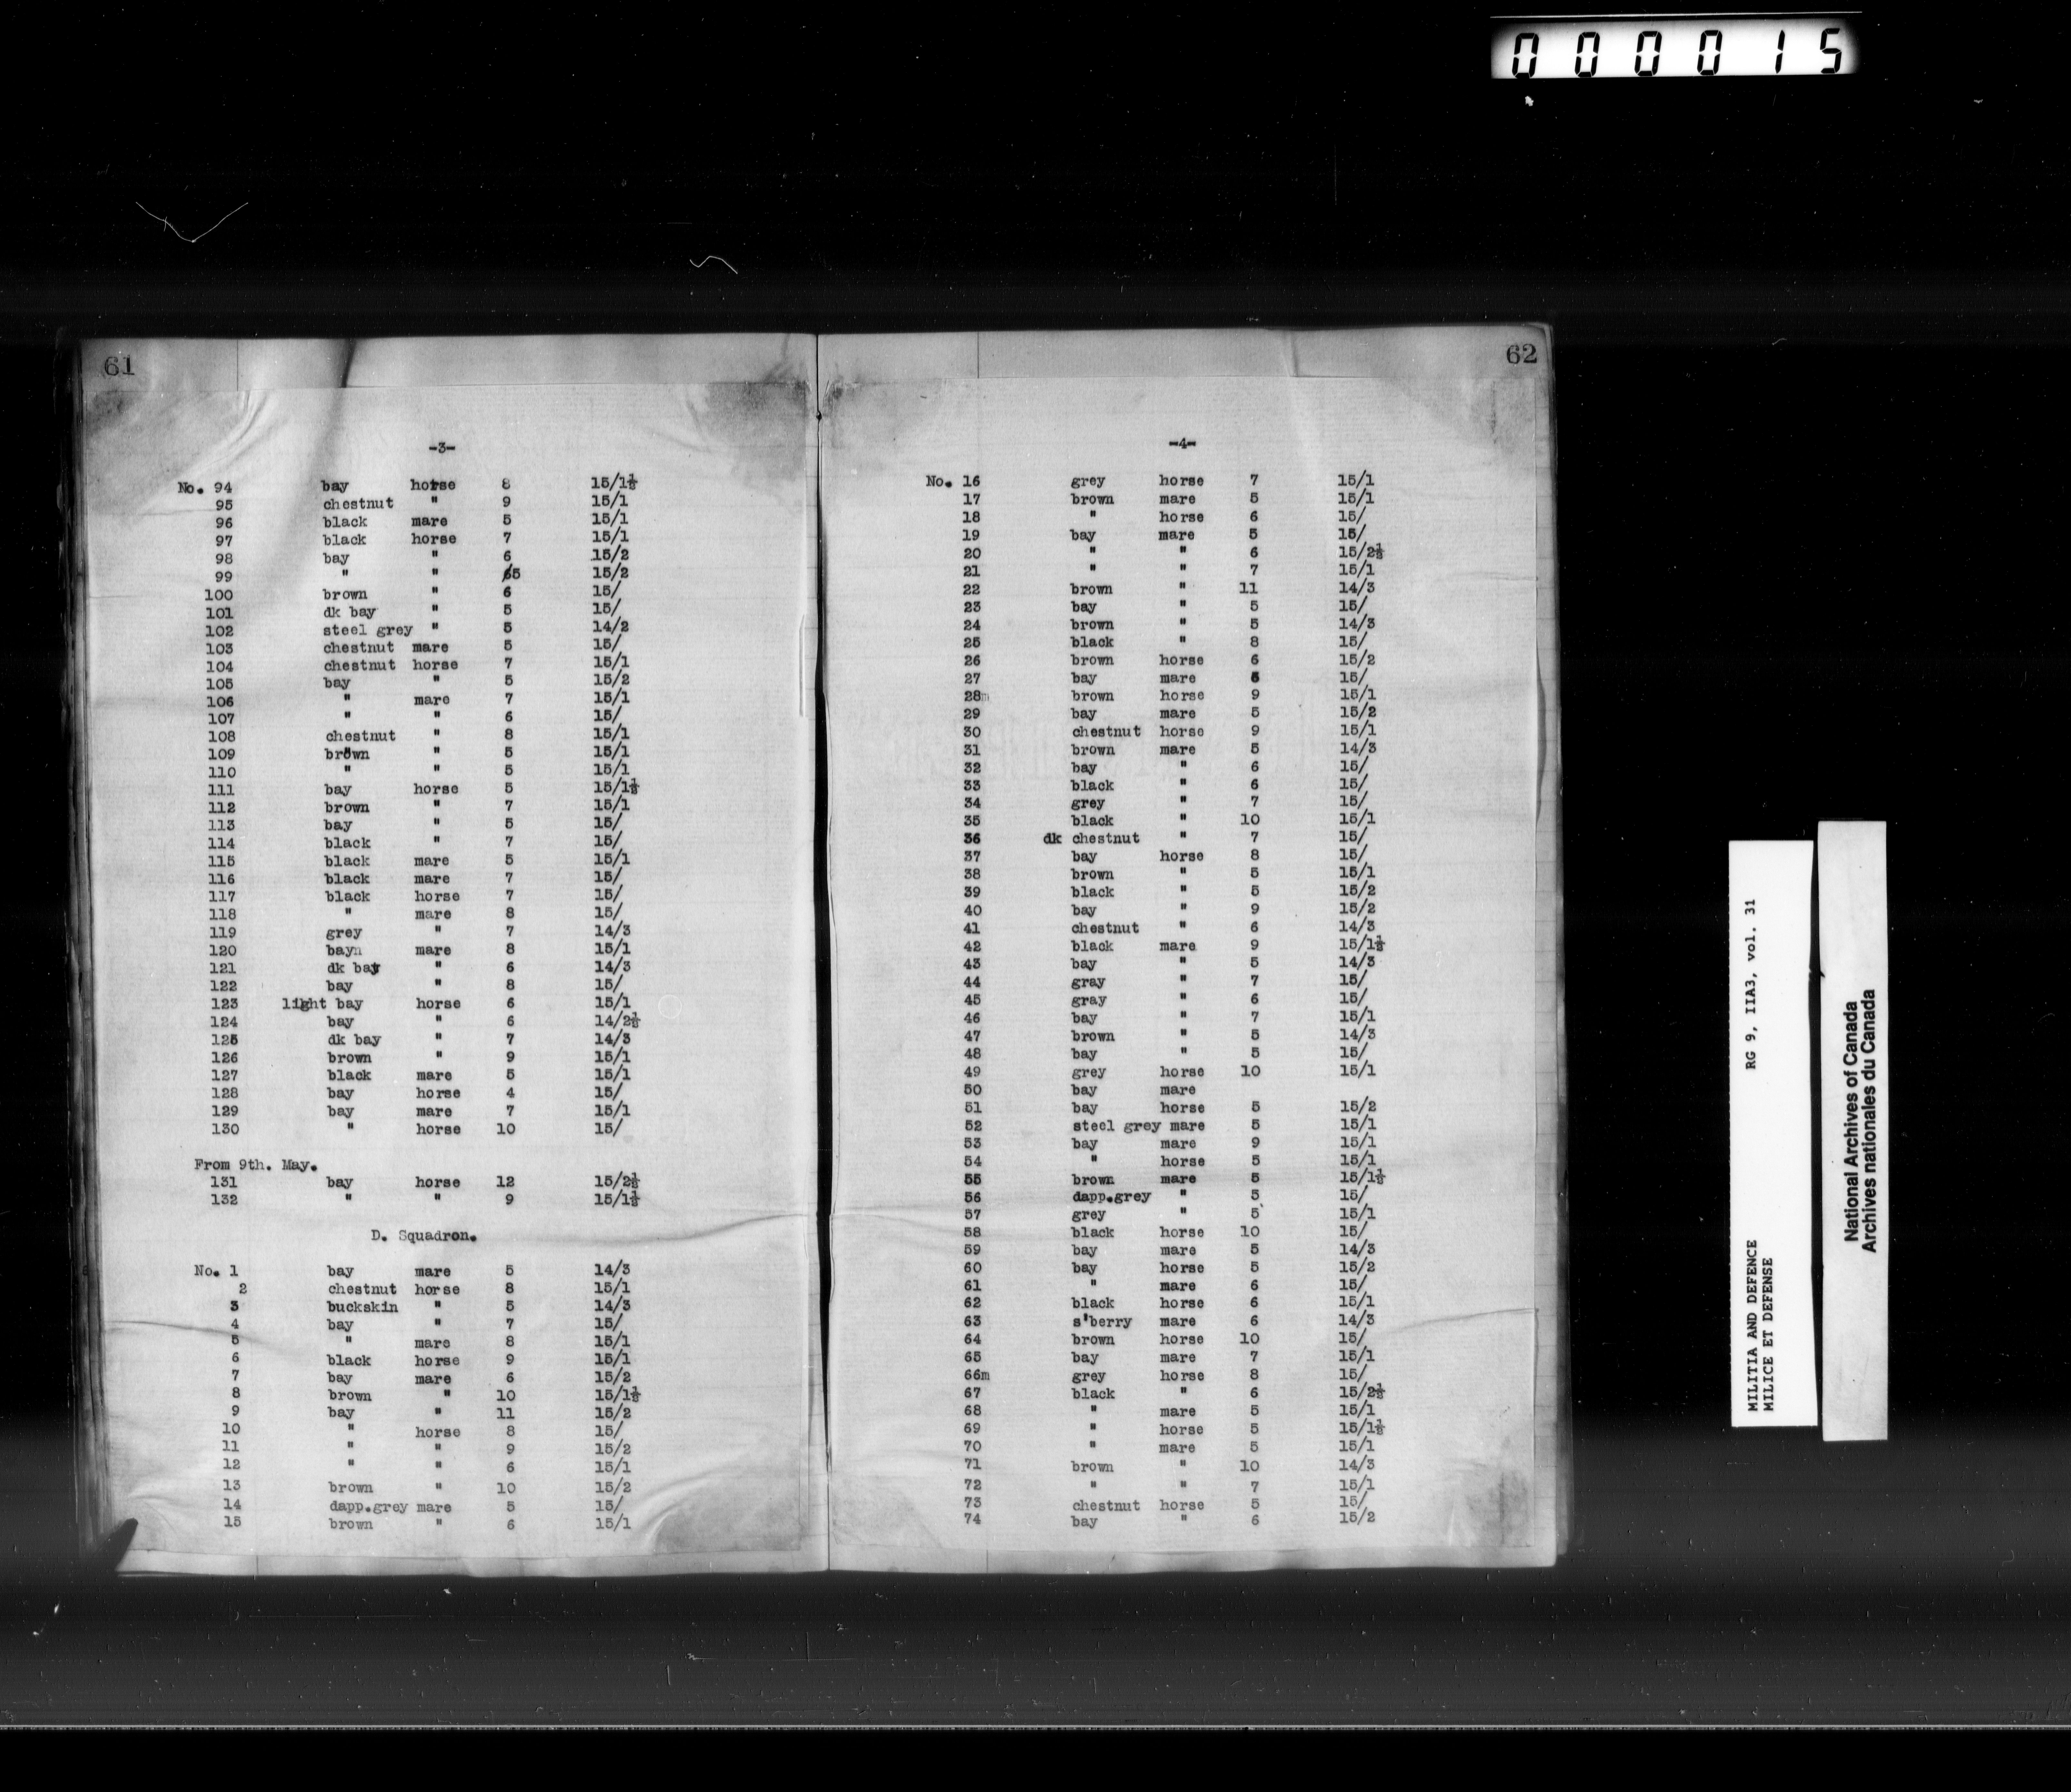 000015
61
-3-
No. 94 bay horse 8 15/1½
95 chestnut " 9 15/1
96 black mare 5 15/1
97 black horse 7 15/1
98 bay " 6 15/2
99 " " 5 15/2
100 brown " 6 15/
101 dk bay " 5 15/
102 steel grey " 5 14/2
103 chestnut mare 5 15/
104 chestnut horse 7 15/1
105 bay " 5 15/2
106 " mare 7 15/1
107 " " 6 15/
108 chestnut " 8 15/1
109 brown " 5 15/1
110 " " 5 15/1
111 bay horse 5 15/1½
112 brown " 7 15/1
113 bay " 5 15/
114 black " 7 15/
115 black mare 5 15/1
116 black mare 7 15/
117 black horse 7 15/
118 " mare 8 15/
119 grey " 7 14/3
120 bayn mare 8 15/1
121 dk bay " 6 14/3
122 bay " 8 15/
123 light bay horse 6 15/1
124 bay " 6 14/2½
125 dk bay " 7 14/3
126 brown " 9 15/1
127 black mare 5 15/1
128 bay horse 4 15/
129 bay mare 7 15/1
130 " horse 10 15/
From 9th. May.
131 bay horse 12 15/2½
132 " " 9 15/1½
D. Squadron.
No. 1 bay mare 5 14/3
2 chestnut horse 8 15/1
3 buckskin " 5 14/3
4 bay " 7 15/
5 " mare 8 15/1
6 black horse 9 15/1
7 bay mare 6 15/2
8 brown " 10 15/1½
9 bay " 11 15/2
10 " horse 8 15/
11 " " 9 15/2
12 " " 6 15/1
13 brown " 10 15/2
14 dapp.grey mare 5 15/
15 brown " 6 15/1
62
-4-
No. 16 grey horse 7 15/1
17 brown mare 5 15/1
18 " horse 6 15/
19 bay mare 5 15/
20 " " 6 15/2½
21 " " 7 15/1
22 brown " 11 14/3
23 bay " 5 15/
24 brown " 5 14/3
25 black " 8 15/
26 brown horse 6 15/2
27 bay mare 15/
28m brown horse 9 15/1
29 bay mare 5 15/2
30 chestnut horse 9 15/1
31 brown mare 5 14/3
32 bay " 6 15/
33 black " 6 15/
34 grey " 7 15/
35 black " 10 15/1
36 dk chestnut " 7 15/
37 bay horse 8 15/
38 brown " 5 15/1
39 black " 5 15/2
40 bay " 9 15/2
41 chestnut " 6 14/3
42 black mare 9 15/1½
43 bay " 5 14/3
44 gray " 7 15/
45 gray " 6 15/
46 bay " 7 15/1
47 brown " 5 14/3
48 bay " 5 15/
49 grey horse 10 15/1
50 bay mare
51 bay horse 5 15/2
52 steel grey mare 5 15/1
53 bay mare 9 15/1
54 " horse 5 15/1
55 brown mare 5 15/1½
56 dapp.grey " 5 15/
57 grey " 5 15/1
58 black horse 10 15/
59 bay mare 5 14/3
60 bay horse 5 15/2
61 " mare 6 15/
62 black horse 6 15/1
63 s'berry mare 6 14/3
64 brown horse 10 15/
65 bay mare 7 15/1
66m grey horse 8 15/
67 black " 6 15/2½
68 " mare 5 15/1
69 " horse 5 15/1½
70 " mare 5 15/1
71 brown " 10 14/3
72 " " 7 15/1
73 chestnut horse 5 15/
74 bay " 6 15/2
MILITIA AND DEFENCE RG 9, IIA3, vol. 31
MILICE ET DEFENSE
National Archives of Canada
Archives nationales du Canada